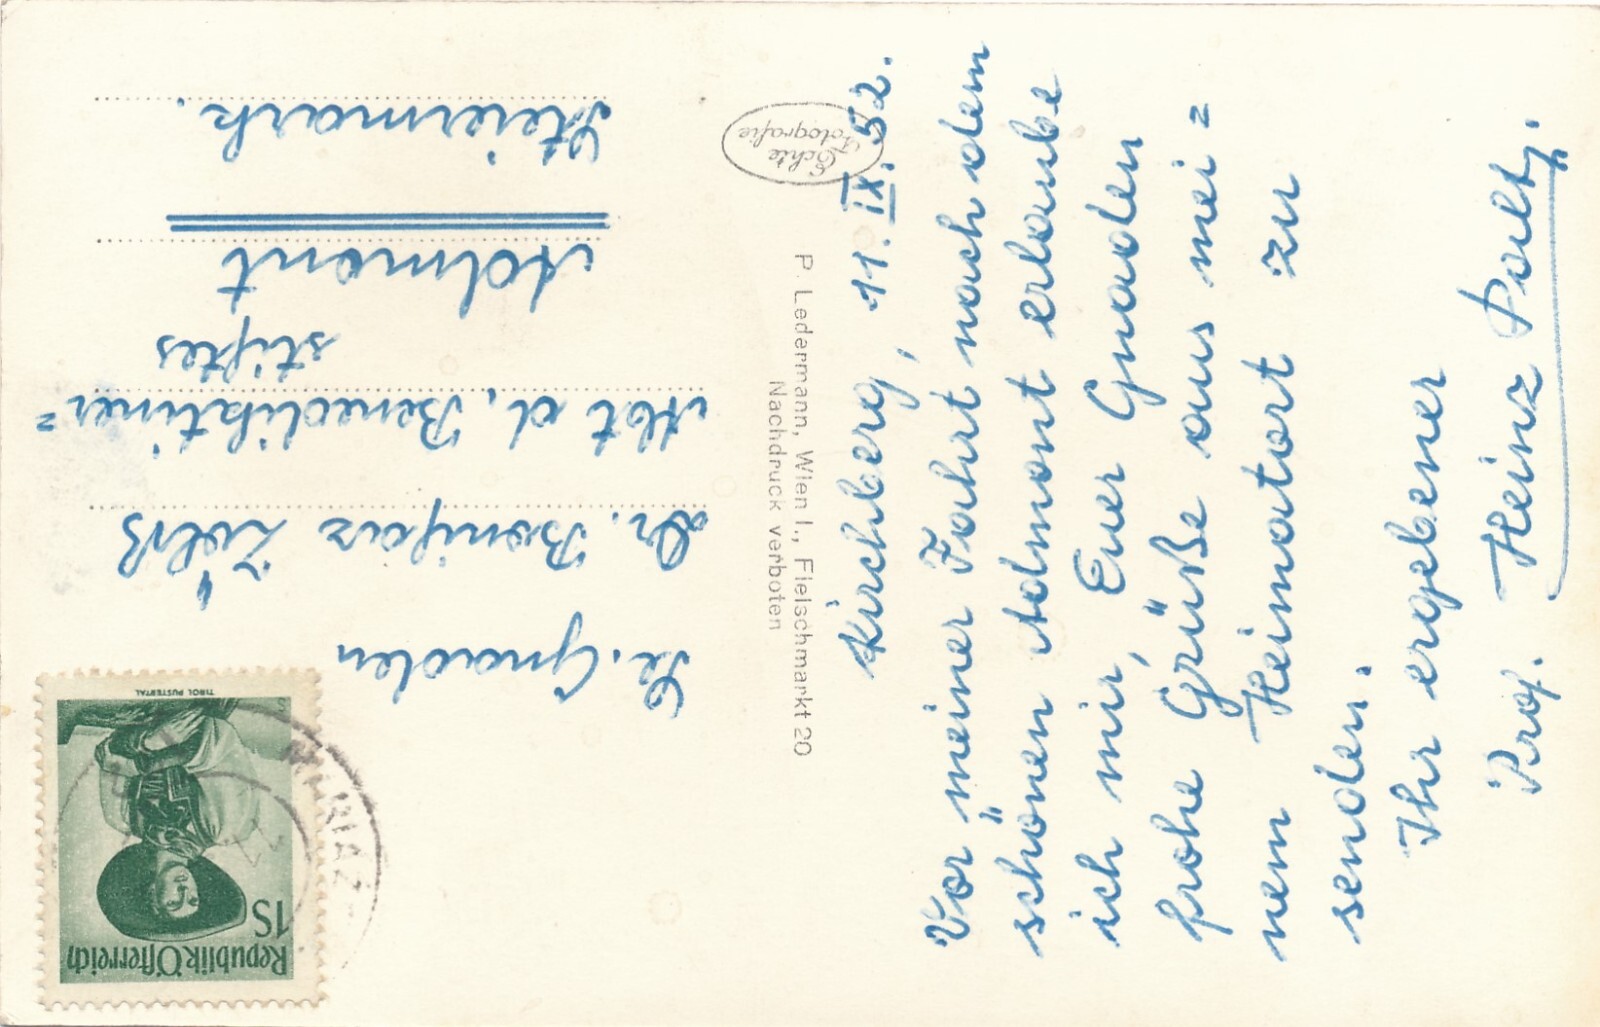 Kirchberg, 11. IX. 52.
Vor meiner Fahrt nach dem
schönen Admont erlaube
ich mir, Euer Gnaden
frohe Grüße aus mei=
nem Heimatort zu
senden.
Ihr ergebener
Prof. Heinz Polty.
Echte
Fotografie
P. Ledermann, Wien I., Fleischmarkt 20
Nachdruck verboten
Republik Österreich
1S
TIROL PUSTERTAL
Sr. Gnaden
Dr. Bonifaz Zölß
Abt d. Benediktiner=
stiftes
Admont
Steiermark.